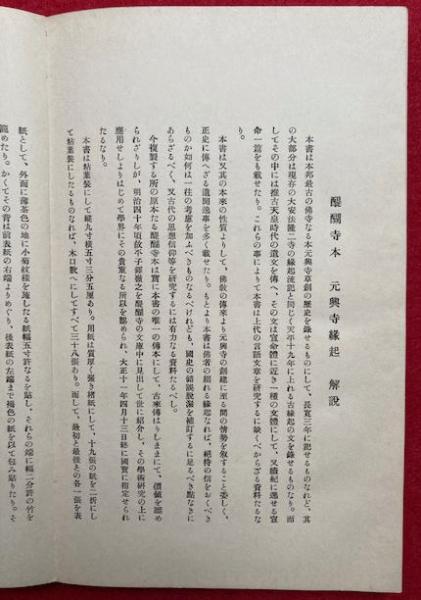 醍醐寺本　元興寺緣起　解說
本書は本邦最古の佛寺なる本元興寺草創の歷史を錄せるものにして、長寬三年に記せるものなれど、其
の大部分は現存の大安法隆二寺の緣起流記と同じく天平十九年に上れる古緣起の文を錄せるものなり。而
してその中には推古天皇時代の遺文を傳へ、その文は宣命體に近き一種の文體にして、又續紀に逸せる宣
命一篇をも載せたり。これらの事によりて本書は上代の言語文章を硏究するに缺くべからざる資料たるな
り。
本書は又其の本來の性質よりして、佛敎の傳來より元興寺の創建に至る間の情勢を叙すること委しく、
正史に傳へざる遺聞逸事を多く載せたり。もとより本書は佛者の錄る緣起なれば、絕待の信をおくべき
ものか如何は一往の考慮を加ふべきものなるべけれども、國史の錯誤脫漏を補訂するに足るべき點なきに
あらざるべく、又古代の思想信仰等を硏究するには有力なる資料たるべし。
今複製する所の原本たる醍醐寺本は實に本書の唯一の傳本にして、古來傳はりしままにて、價値を認め
られざりしが、明治四十年頃故不子鐸嶺之を醍醐寺の文庫中に見出して世に紹介し、その學術硏究の上に
應用せしよりはじめて學界にその貴重なる所以を認められ、大正十一年四月十三日終に國寶に指定せられ
たるなり。
本書は粘葉裝にして縱九寸橫五寸三分五厘あり。用紙は質厚く强き楮紙にして、十九張の紙を二折にし
て粘葉裝にしたるものなれば、木口數へにしてすべて三十八張あり。而して、最初と最後との各一張を表
紙として、外面に薄茶色の地に小菊紋樣を施したる紙幅五寸許なるを貼し、それらの端に幅二分許の竹を
籠めたり。かくてその背は前表紙の右端よりめぐり、後表紙の左端まで褐色の紙を以て包み貼りたり。そ